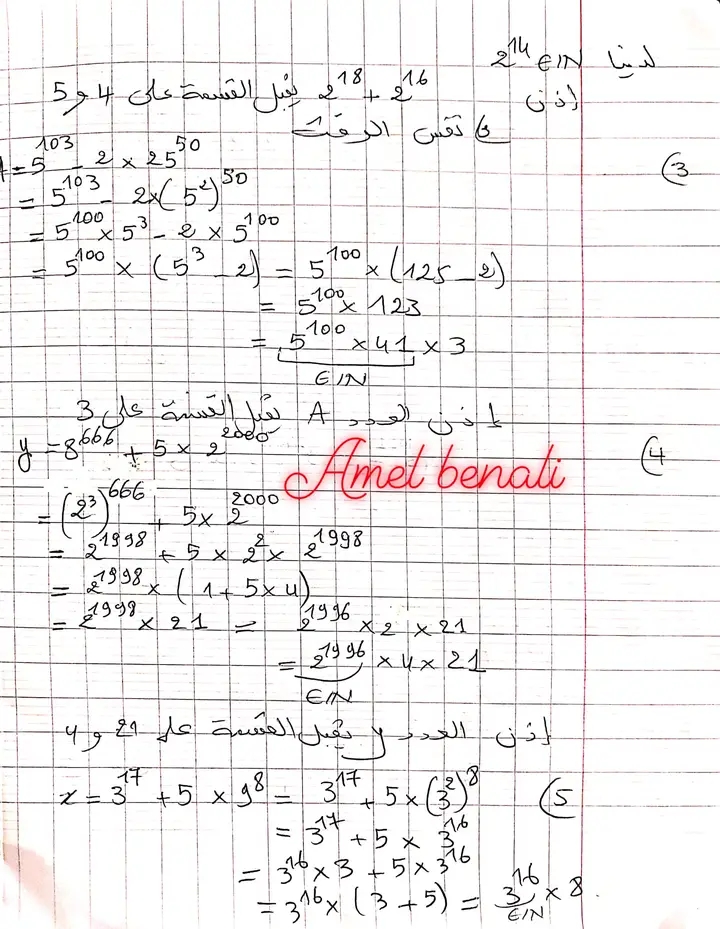 لدينا 2^14 ∈ IN
إذن 2^18 + 2^16 يقبل القسمة على 4 و 5
في نفس الوقت
3) A = 5^103 - 2 × 25^50
= 5^103 - 2 × (5^2)^50
= 5^100 × 5^3 - 2 × 5^100
= 5^100 × (5^3 - 2) = 5^100 × (125 - 2)
= 5^100 × 123
= 5^100 × 41 × 3
∈ IN
إذن العدد A يقبل القسمة على 3
4) y = 8^666 + 5 × 2^2000
Amel benali
= (2^3)^666 + 5 × 2^2000
= 2^1998 + 5 × 2^2 × 2^1998
= 2^1998 × (1 + 5 × 4)
= 2^1998 × 21 = 2^1996 × 2 × 21
= 2^1996 × 4 × 21
∈ IN
إذن العدد y يقبل القسمة على 21 و 4
5) x = 3^17 + 5 × 9^8 = 3^17 + 5 × (3^2)^8
= 3^17 + 5 × 3^16
= 3^16 × 3 + 5 × 3^16
= 3^16 × (3 + 5) = 3^16 × 8
∈ IN